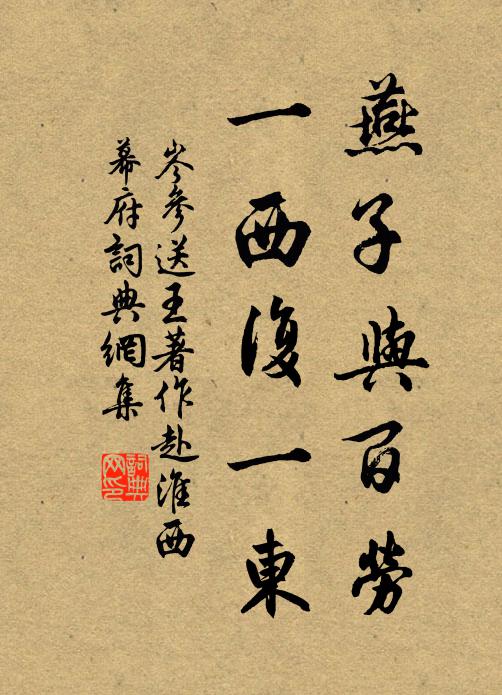 燕子與百勞
一西復一東
岑參送王著作赴淮西
幕府詞典網集
詞典網印